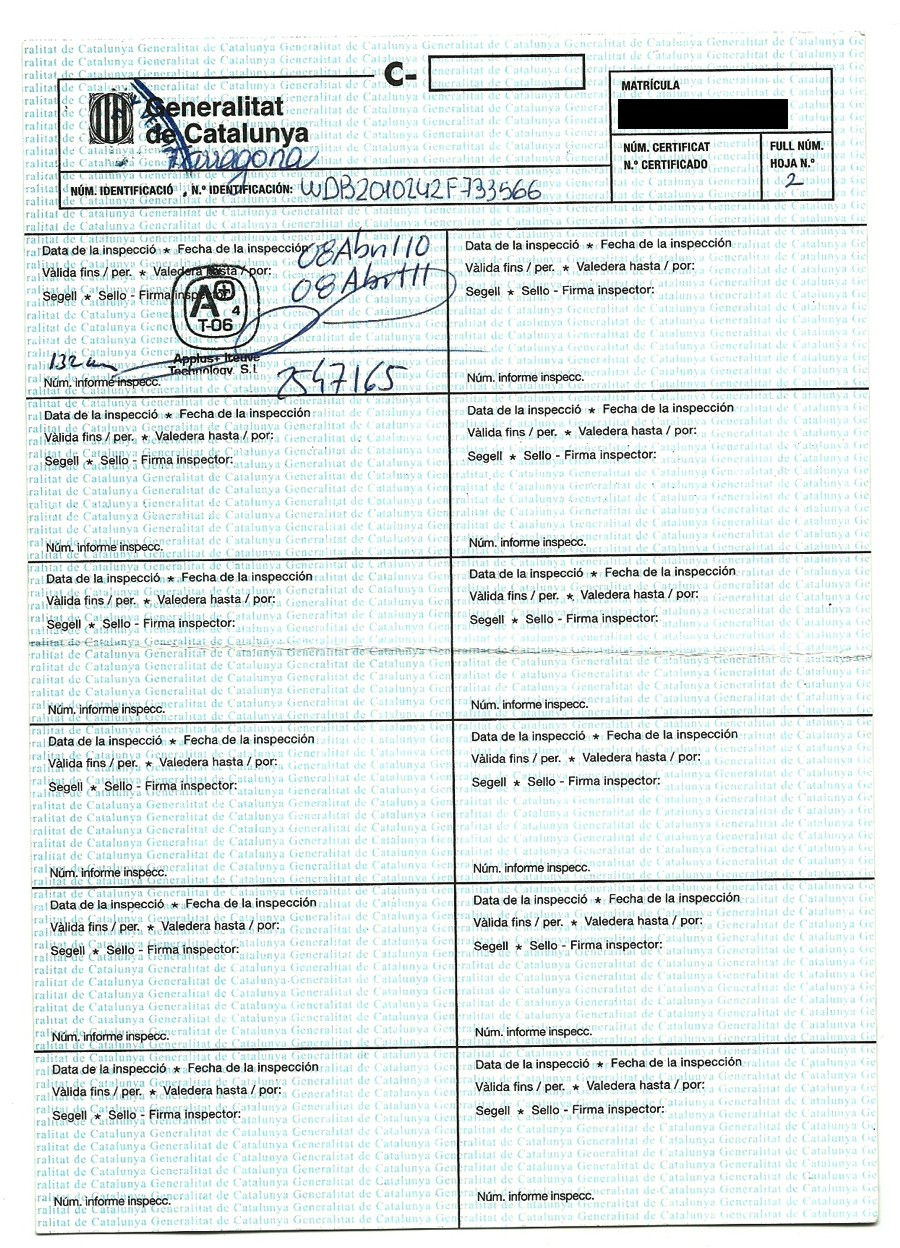 C-
Generalitat
de Catalunya
Tarragona
NÚM. IDENTIFICACIÓ * N.º IDENTIFICACIÓN: WDB2010242F733566
MATRÍCULA
NÚM. CERTIFICAT
N.º CERTIFICADO
FULL NÚM.
HOJA N.º
2
Data de la inspecció * Fecha de la inspección 08 Abril 10
Vàlida fins / per. * Valedera hasta / por: 08 Abril 11
Segell * Sello - Firma inspector:
A+
4
T-06
Applus+ Iteuve
Technology, S.L
Núm. informe inspecc. 2547165
Data de la inspecció * Fecha de la inspección
Vàlida fins / per. * Valedera hasta / por:
Segell * Sello - Firma inspector:
Núm. informe inspecc.
Data de la inspecció * Fecha de la inspección
Vàlida fins / per. * Valedera hasta / por:
Segell * Sello - Firma inspector:
Núm. informe inspecc.
Data de la inspecció * Fecha de la inspección
Vàlida fins / per. * Valedera hasta / por:
Segell * Sello - Firma inspector:
Núm. informe inspecc.
Data de la inspecció * Fecha de la inspección
Vàlida fins / per. * Valedera hasta / por:
Segell * Sello - Firma inspector:
Núm. informe inspecc.
Data de la inspecció * Fecha de la inspección
Vàlida fins / per. * Valedera hasta / por:
Segell * Sello - Firma inspector:
Núm. informe inspecc.
Data de la inspecció * Fecha de la inspección
Vàlida fins / per. * Valedera hasta / por:
Segell * Sello - Firma inspector:
Núm. informe inspecc.
Data de la inspecció * Fecha de la inspección
Vàlida fins / per. * Valedera hasta / por:
Segell * Sello - Firma inspector:
Núm. informe inspecc.
Data de la inspecció * Fecha de la inspección
Vàlida fins / per. * Valedera hasta / por:
Segell * Sello - Firma inspector:
Núm. informe inspecc.
Data de la inspecció * Fecha de la inspección
Vàlida fins / per. * Valedera hasta / por:
Segell * Sello - Firma inspector:
Núm. informe inspecc.
Data de la inspecció * Fecha de la inspección
Vàlida fins / per. * Valedera hasta / por:
Segell * Sello - Firma inspector:
Núm. informe inspecc.
Data de la inspecció * Fecha de la inspección
Vàlida fins / per. * Valedera hasta / por:
Segell * Sello - Firma inspector:
Núm. informe inspecc.